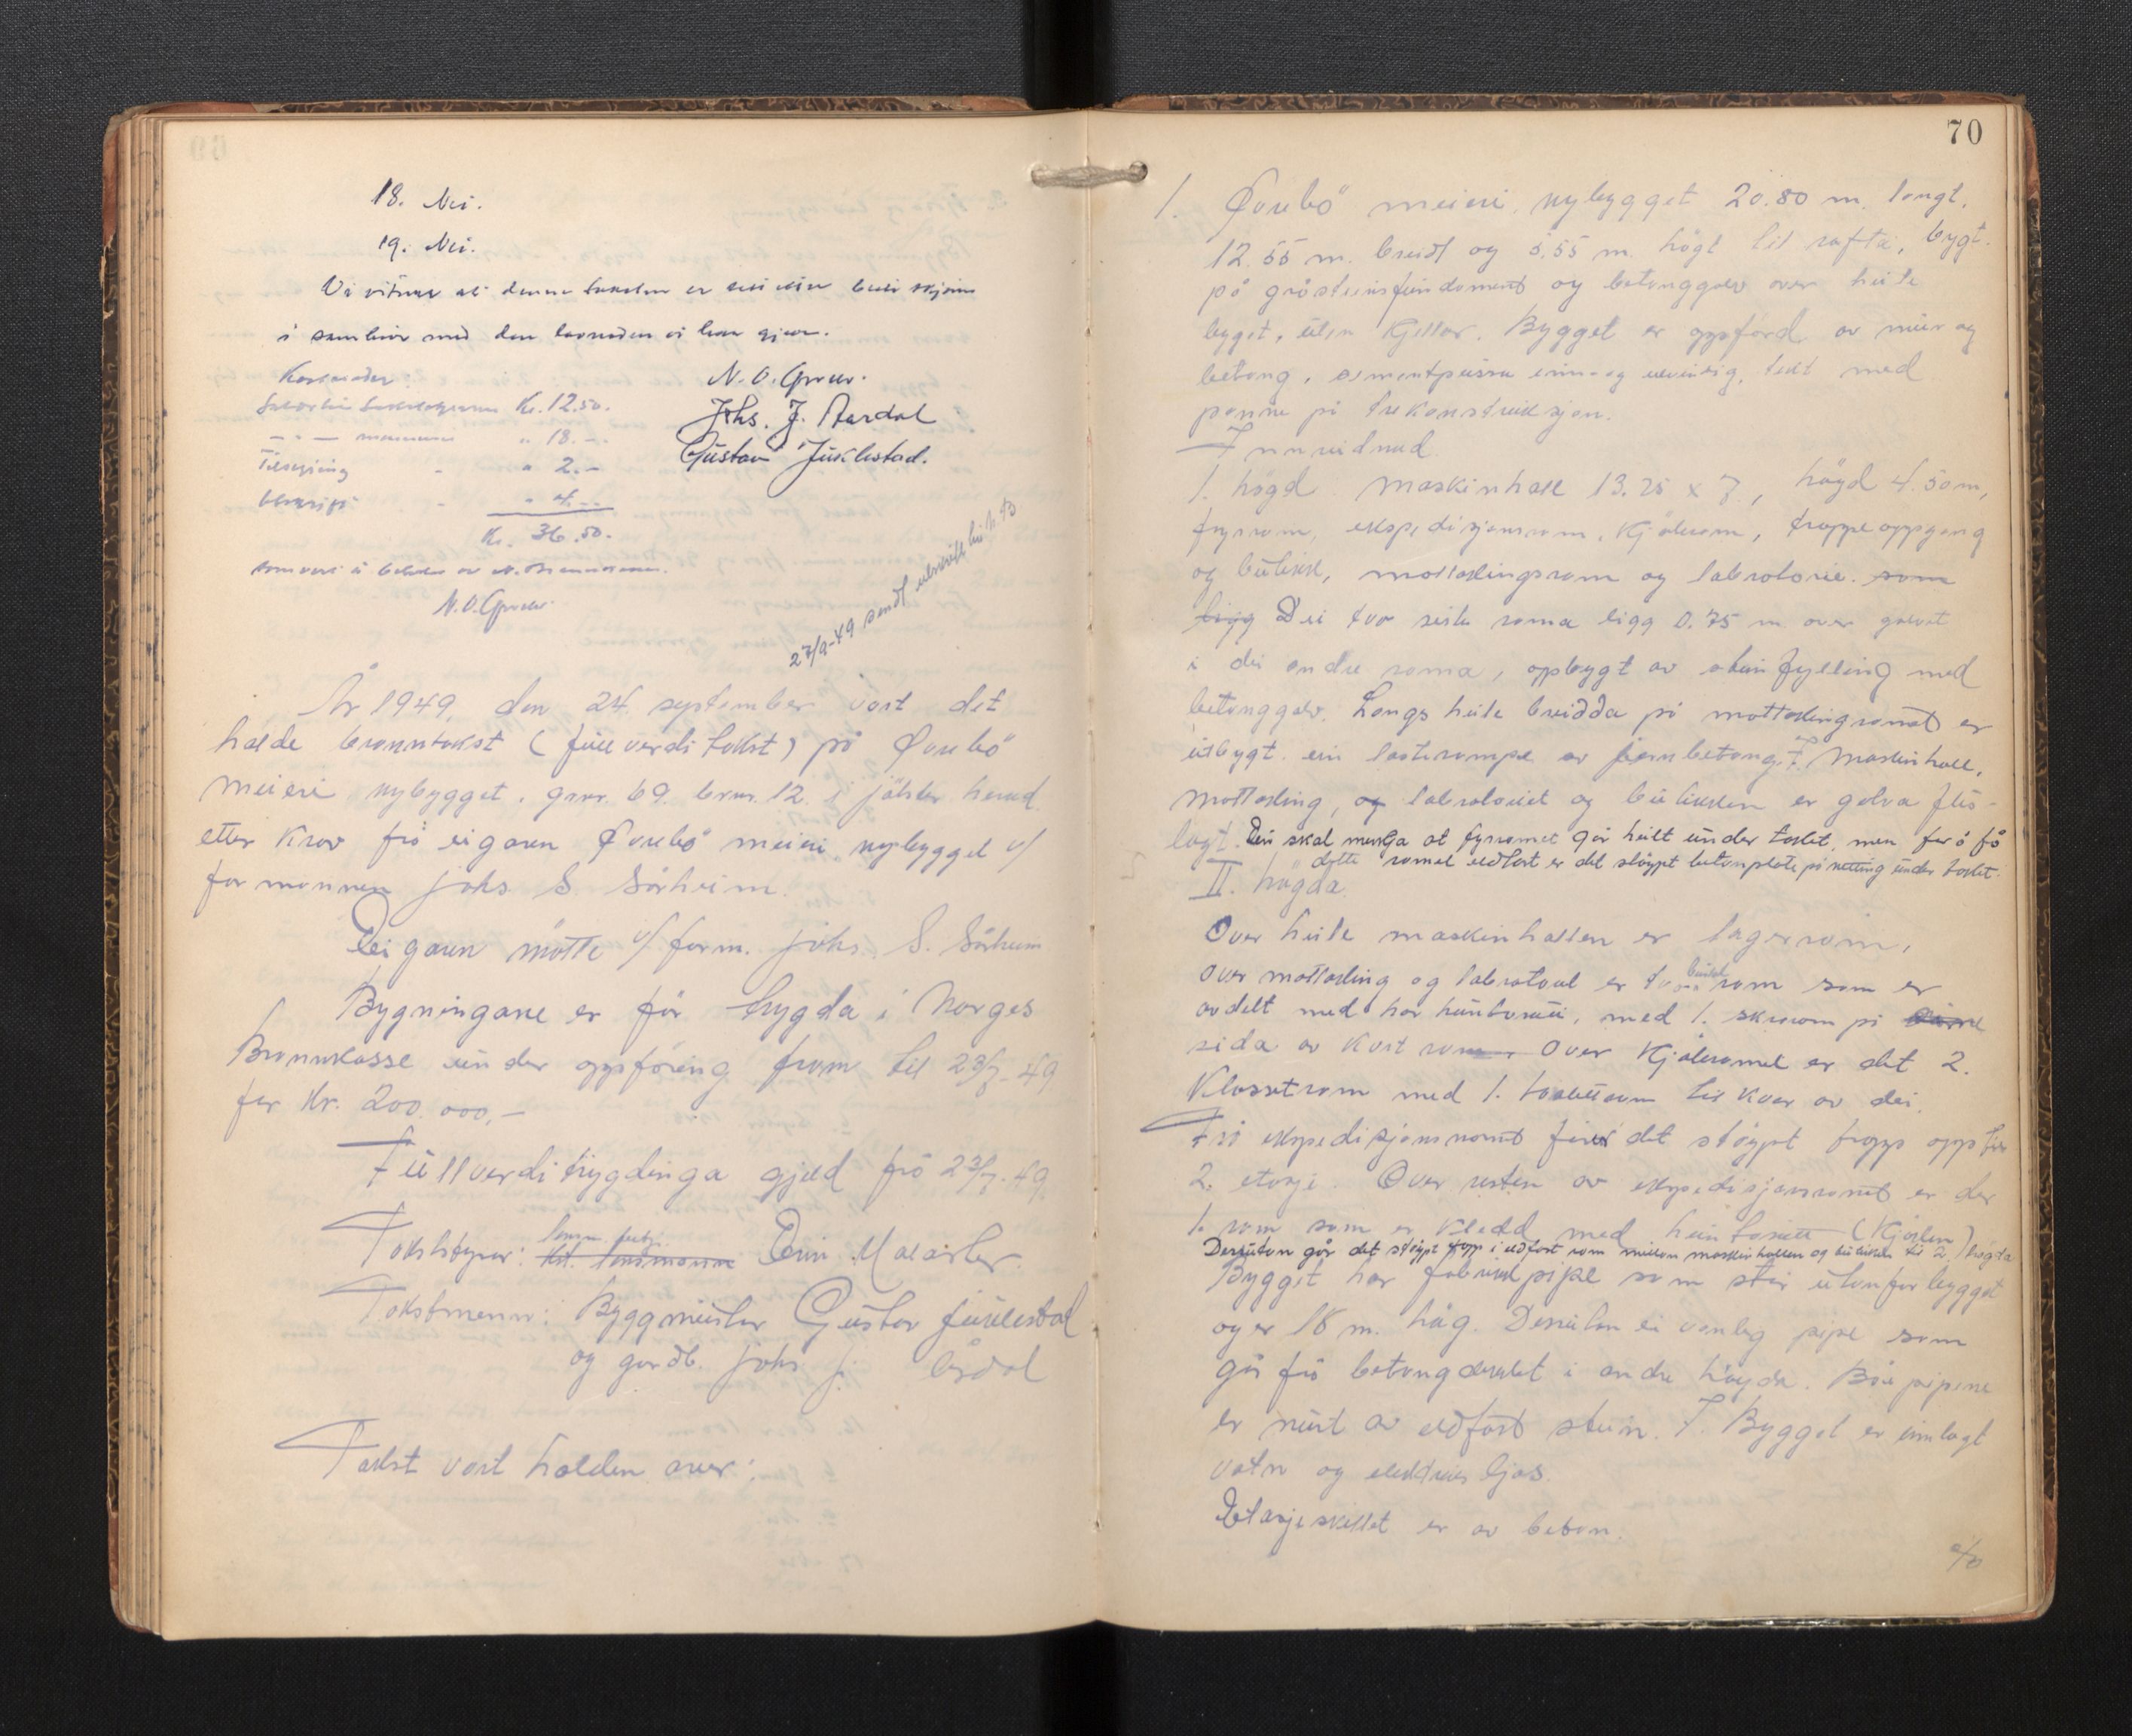 18. Nei.
19. Nei.
Vi vitnar at denne taksten er etter beste skjøn
i samhøve med den lovnaden vi har gjeve.
Kostnader:
N. O. Grov.
Kr. 12.50.
Johs. J. Aardal
" 18.-
Gustav Juklestad.
Tilsegjing " 2.-
Utskrift " 4.-
Kr. 36.50.
N. O. Grov.
27/9-49 sendt utskrift til N.B
År 1949, den 24. september vart det
halde branntakst (fullverditakst) på Øvrebö
meieri nybygget, gnr. 69. brnr. 12. i Jölster herad
etter krav frå eigaren Øvrebö meieri, nybygget v/
formannen Johs S. Sörheim.
Eigaren mötte v/ form. Johs. S. Sörheim
Bygningane er för trygda i Norges
Brannkasse under oppföring fram til 23/7-49
for kr. 200.000,-
Fullverditrygdinga gjeld frå 23/7-49.
lensm. fullm.
Takststyrar: lensmann
Takstmenn: Byggmeister Gustav Juklestad
og gardb. Johs J. Årdal
Takst vart halden over:
70
1. Øvrebö meieri, nybygget 20.80 m. langt,
12.55 m. breidt og 5.55 m. högt til rafta, bygt
på gråsteinsfundament og betonggolv over heile
bygget, uten kjellar. Bygget er oppförd av mur og
betong, sementpussa inn- og utvendig, tekt med
panne på trekonstruksjon.
Innreidnad
1. högd. Maskinhall 13.25 x 7., högd 4.50 m,
fyrrom, ekspedisjonsrom, kjölerom, trappeoppgang
og butikk, mottakingsrom og labratorie. som
ligg Dei tvo siste roma ligg 0.75 m over golvet
i dei andre roma, oppbygt av steinfylling med
betonggolv. Langs heile breidda på mottakingromet er
utbygt ein lasterampe av jernbetong. I maskinhall,
mottaking, og labratoriet og butikken er golva flis-
lagt. Ein skal merka at fyrromet går heilt under taket, men for å få
dette romet eldfast er det støypt betonplate på netting under taket.
II. högda.
Over heile maskinhallen er lagerrom,
over mottaking og labratoriet er rom som er
avdelt med har huntonitt, med 1. skaprom på
sida av kvart rom. Over kjöleromet er det 2.
Klossetrom med 1. toalettrom til kvar av dei.
Frå ekspedisjonsromet förer det stöypt trapp opp til
2. etasje. Over resten av ekspedisjonsromet er der
1. rom som er kledd med huntonitt (kjöken)
Desutan går det støypt trapp i eldfast rom millom maskinhallen og butikken til 2. högda
Bygget har fabrikkpipe som står utanfor bygget
og er 16 m. høg. Desutan ei vanleg pipe som
går frå betongdekket i andre högda. Båe pipene
er murt av eldfast stein. I Bygget er innlagt
vatn og elektrisk ljos.
Etasjeskillet er av beton.